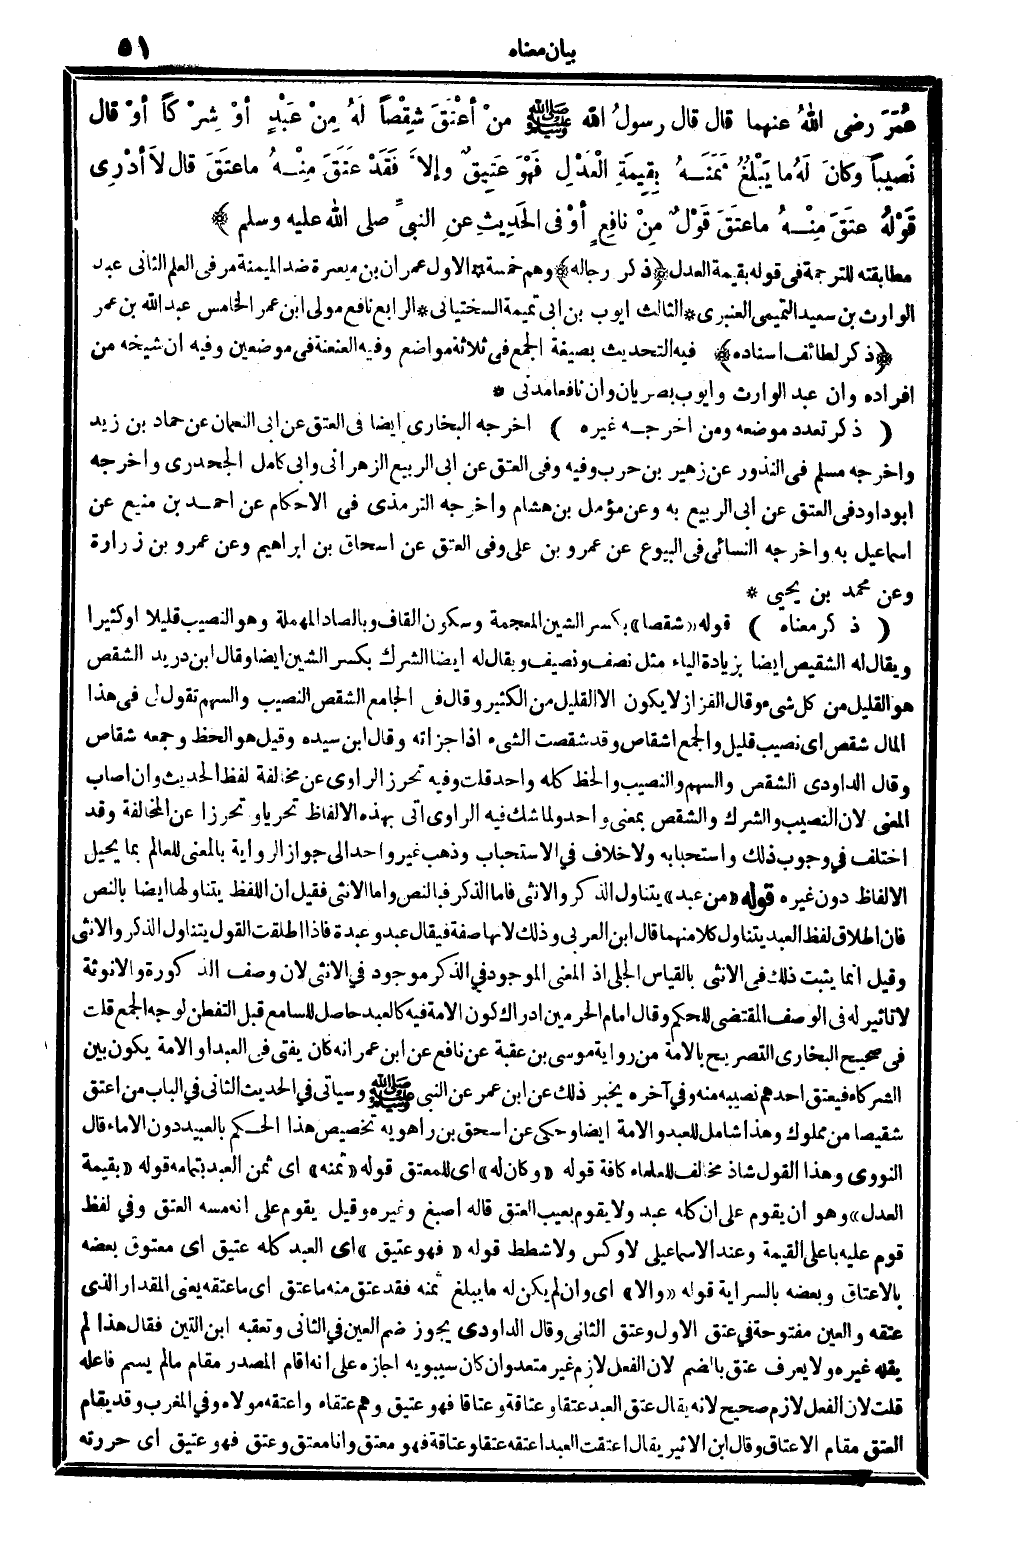 بيان معناه ٥١
عُمَرَ رضى اللهُ عنهما قال قال رسولُ الله ﷺ منْ أعْتَقَ شِقْصاً لَهُ مِنْ عَبْدٍ أوْ شِرْكاً أوْ قال
نَصيباً وكانَ لَهُ ما يَبْلُغُ ثَمَنَهُ بِقِيمَةِ الْعَدْلِ فَهْوَ عَتِيقٌ وإلاَّ فَقَدْ عَتَقَ مِنْهُ ما عتَقَ قال لاَ أدْرِى
قَوْلُهُ عتَقَ مِنْهُ ماعتَقَ قَوْلٌ مِنْ نافِعٍ أوْ فى الحَدِيثِ عنِ النبىِّ صلى الله عليه وسلم ﴾
مطابقته للترجمة فى قوله بقيمة العدل ﴿ذكر رجاله﴾ وهم خمسة * الاول عمران بن ميسرة ضد الميمنة مر فى العلم الثانى عبد
الوارث بن سعيد التميمى العنبرى * الثالث ايوب بن ابى تميمة السختيانى * الرابع نافع مولى ابن عمر الخامس عبد الله بن عمر
﴿ذكر لطائف اسناده﴾ فيه التحديث بصيغة الجمع فى ثلاثة مواضع وفيه العنعنة فى موضعين وفيه ان شيخه من
افراده وان عبد الوارث وايوب بصريان وان نافعا مدنى *
( ذكر تعدد موضعه ومن اخرجه غيره ) اخرجه البخارى ايضا فى العتق عن ابى النعمان عن حماد بن زيد
واخرجه مسلم فى النذور عن زهير بن حرب وفيه وفى العتق عن ابى الربيع الزهرانى وابى كامل الجحدرى واخرجه
ابو داود فى العتق عن ابى الربيع به وعن مؤمل بن هشام واخرجه الترمذى فى الاحكام عن احمد بن منيع عن
اسماعيل به واخرجه النسائى فى البيوع عن عمرو بن على وفى العتق عن اسحاق بن ابراهيم وعن عمرو بن زرارة
وعن محمد بن يحيى *
( ذكر معناه ) قوله «شقصا» بكسر الشين المعجمة وسكون القاف وبالصاد المهملة وهو النصيب قليلا او كثيرا
ويقال له الشقيص ايضا بزيادة الياء مثل نصف ونصيف ويقال له ايضا الشرك بكسر الشين ايضا وقال ابن دريد الشقص
هو القليل من كل شىء وقال القزاز لا يكون الا القليل من الكثير وقال فى الجامع الشقص النصيب والسهم تقول لى فى هذا
المال شقص اى نصيب قليل والجمع اشقاص وقد شقصت الشىء اذا جزاته وقال ابن سيده وقيل هو الحظ وجمعه شقاص
وقال الداودى الشقص والسهم والنصيب والحظ كله واحد قلت وفيه تحرز الراوى عن مخالفة لفظ الحديث وان اصاب
المعنى لان النصيب والشرك والشقص بمعنى واحد ولما شك فيه الراوى اتى بهذه الالفاظ تحريا وتحرزا عن المخالفة وقد
اختلف في وجوب ذلك واستحبابه ولا خلاف في الاستحباب وذهب غير واحد الى جواز الرواية بالمعنى للعالم بما يحيل
الالفاظ دون غيره قوله «من عبد» يتناول الذكر والانثى فاما الذكر فبالنص واما الانثى فقيل ان اللفظ يتناولها ايضا بالنص
فان اطلاق لفظ العبد يتناول كلا منهما قال ابن العربى وذلك لانها صفة فيقال عبد وعبدة فاذا اطلقت القول يتناول الذكر والانثى
وقيل انما يثبت ذلك فى الانثى بالقياس الجلى اذ المعنى الموجود في الذكر موجود في الانثى لان وصف الذكورة والانوثة
لا تاثير له فى الوصف المقتضى للحكم وقال امام الحرمين ادراك كون الامة فيه كالعبد حاصل للسامع قبل التفطن لوجه الجمع قلت
فى صحيح البخارى التصريح بالامة من رواية موسى بن عقبة عن نافع عن ابن عمر انه كان يفتى فى العبد او الامة يكون بين
الشركاء فيعتق احدهم نصيبه منه وفي آخره يخبر ذلك عن ابن عمر عن النبى ﷺ وسياتى في الحديث الثانى في الباب من اعتق
شقيصا من مملوك وهذا شامل للعبد والامة ايضا وحكى عن اسحق بن راهويه تخصيص هذا الحكم بالعبيد دون الاماء قال
النووى وهذا القول شاذ مخالف للعلماء كافة قوله «وكان له» اى للمعتق قوله «ثمنه» اى ثمن العبد بتمامه قوله «بقيمة
العدل» وهو ان يقوم على ان كله عبد ولا يقوم بعيب العتق قاله أصبغ وغيره وقيل يقوم على انه مسه العتق وفي لفظ
قوم عليه باعلى القيمة وعند الاسماعيلى لا وكس ولا شطط قوله « فهو عتيق » اى العبد كله عتيق اى معتوق بعضه
بالاعتاق وبعضه بالسراية قوله «والا» اى وان لم يكن له ما يبلغ ثمنه فقد عتق منه ما عتق اى ما عتقه يعنى المقدار الذى
عتقه والعين مفتوحة في عتق الاول وعتق الثانى وقال الداودى يجوز ضم العين في الثانى وتعقبه ابن التين فقال هذا لم
يقله غيره ولا يعرف عتق بالضم لان الفعل لازم غير متعد وان كان سيبويه اجازه على انه اقام المصدر مقام مالم يسم فاعله
قلت لان الفعل لازم صحيح لانه يقال عتق العبد عتقا وعتاقة وعتاقا فهو عتيق وهم عتقاء واعتقه مولاه وفي المغرب وقد يقام
العتق مقام الاعتاق وقال ابن الاثير يقال اعتقت العبد اعتقه عتقا وعتاقة فهو معتق وانا معتق وعتق فهو عتيق اى حررته